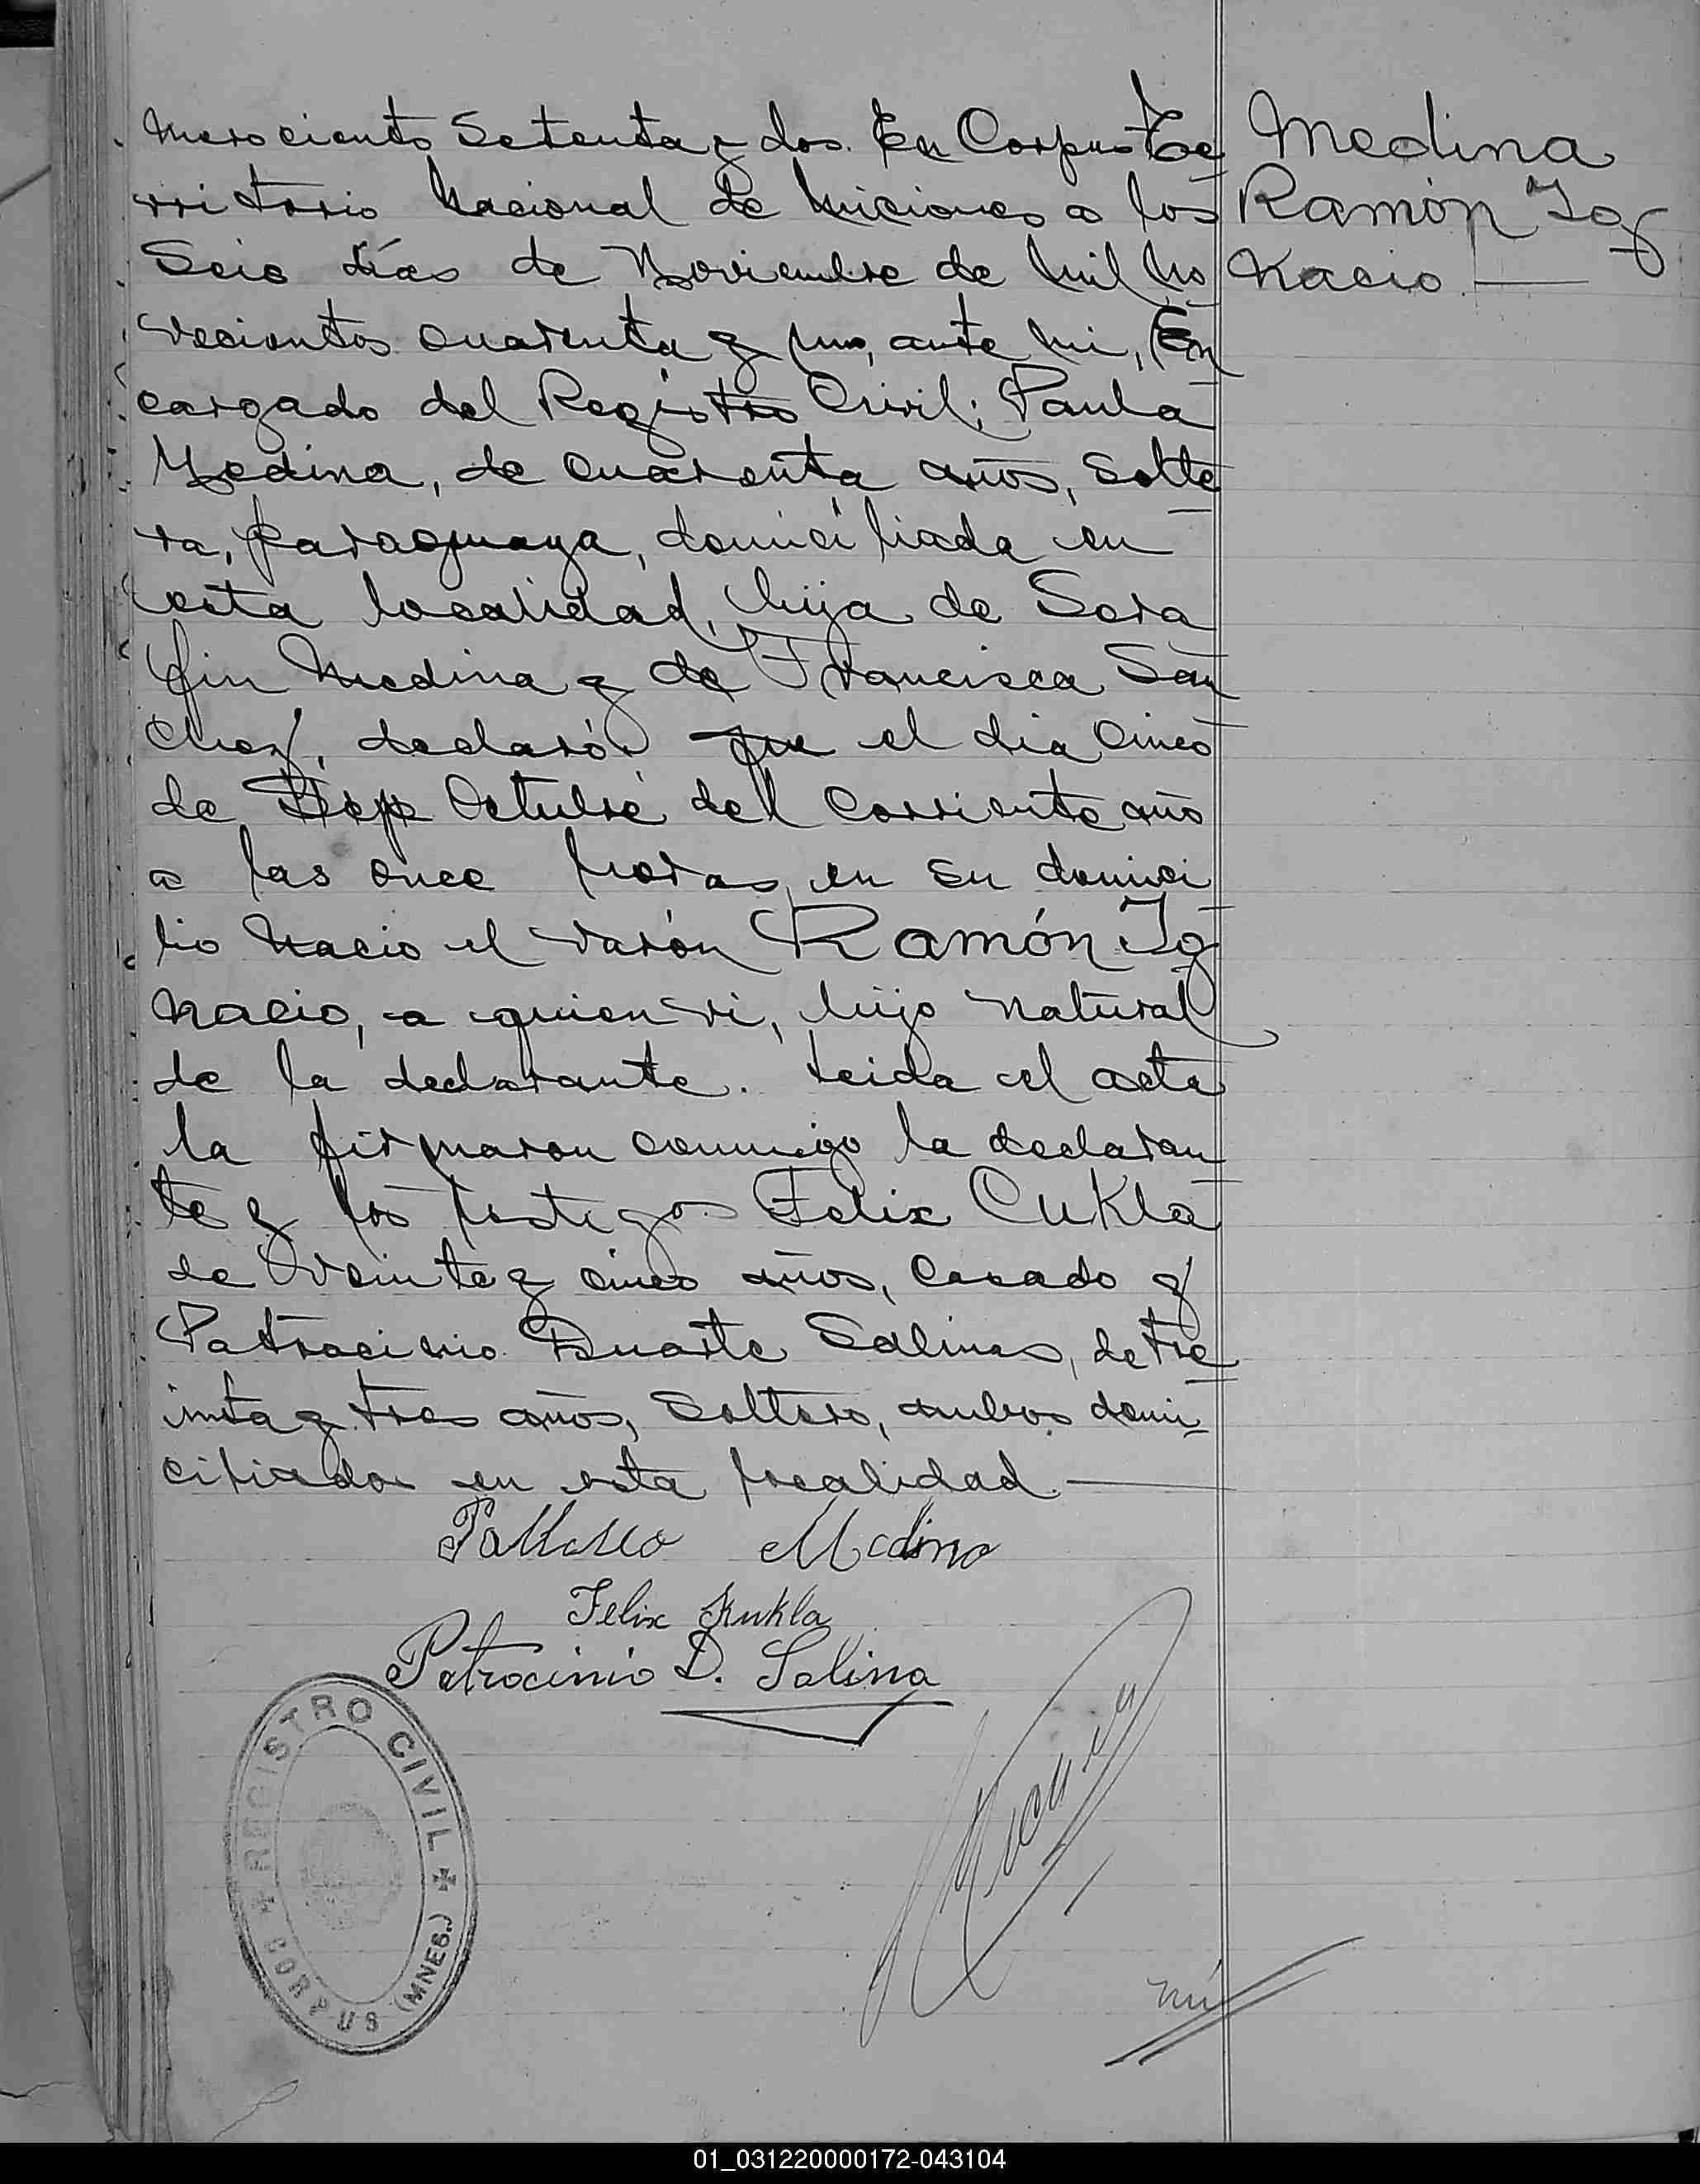 mero ciento Setenta y dos. En Corpus Te
rritorio Nacional de Miciones a los
Seis días de Noviembre de mil no
vecientos cuarenta y uno, ante mi, En
cargado del Registro Civil; Paula
Medina, de cuarenta años, solte
ra, paraguaya, domiciliada en
esta localidad, hija de Sera
fin Medina y de Francisca San
chez, declaró que el dia cinco
de Octubre del corriente año
a las once horas, en su domici
lio nacio el varón Ramón Ig
nacio, a quien vi, hijo natural
de la declarante. Leida el acta
la firmaron conmigo la declaran
te y los testigos Felix Cukla
de veinte y cinco años, casado y
Patrocinio Duarte Salinas, de tre
inta y tres años, soltero, ambos domi
ciliados en esta localidad.
Medina
Felix Kukla
Patrocinio D. Salina
Medina
Ramón Ig
nacio
REGISTRO CIVIL
CORPUS (MNES.)
01_031220000172-043104